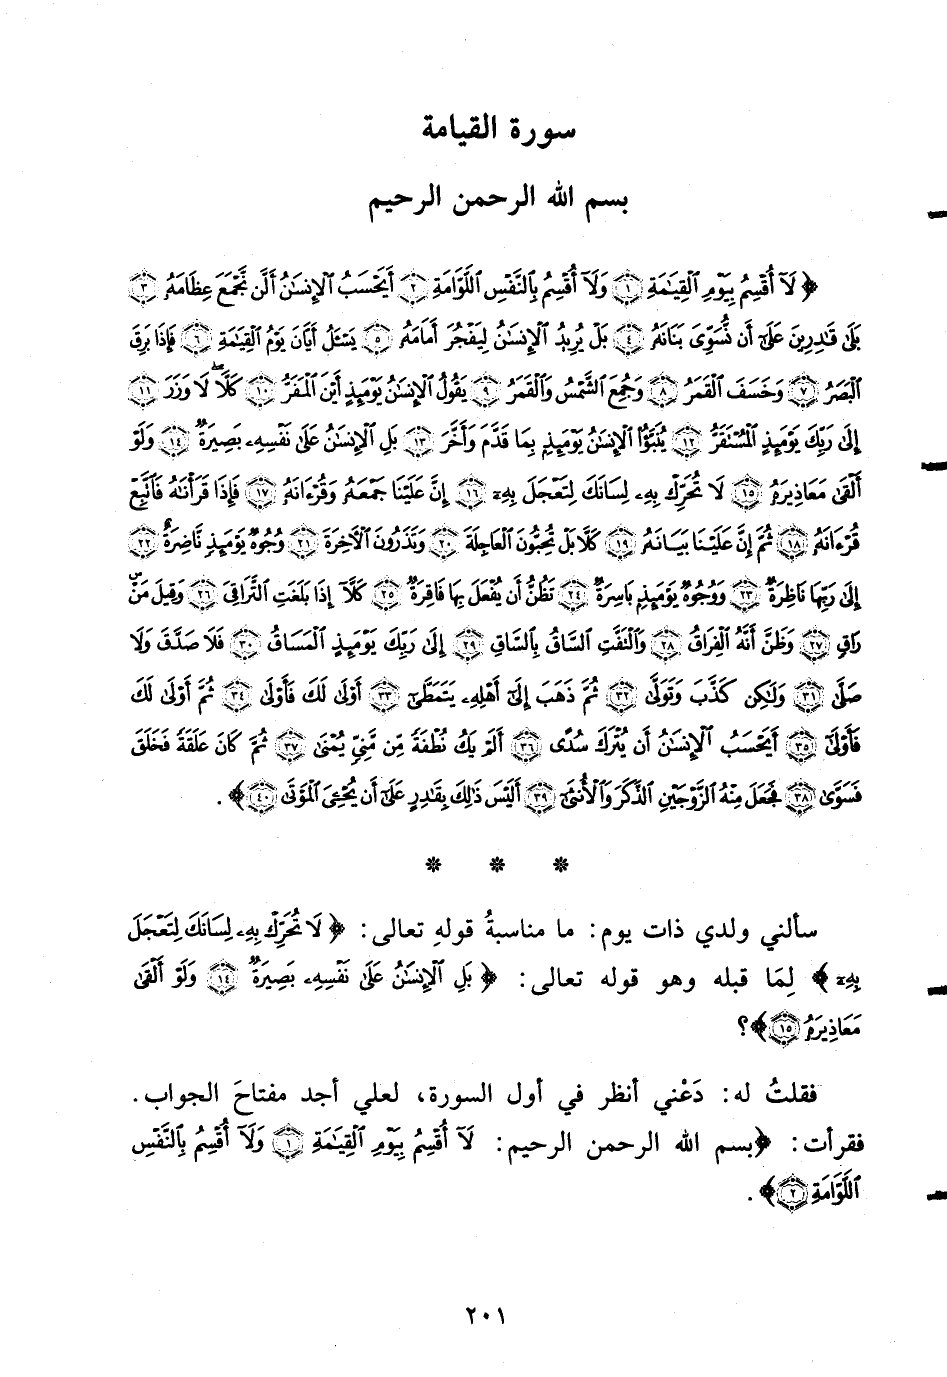 سورة القيامة
بسم الله الرحمن الرحيم
﴿ لَآ أُقْسِمُ بِيَوْمِ ٱلْقِيَٰمَةِ ۝١ وَلَآ أُقْسِمُ بِٱلنَّفْسِ ٱللَّوَّامَةِ ۝٢ أَيَحْسَبُ ٱلْإِنسَٰنُ أَلَّن نَّجْمَعَ عِظَامَهُۥ ۝٣
بَلَىٰ قَٰدِرِينَ عَلَىٰٓ أَن نُّسَوِّىَ بَنَانَهُۥ ۝٤ بَلْ يُرِيدُ ٱلْإِنسَٰنُ لِيَفْجُرَ أَمَامَهُۥ ۝٥ يَسْـَٔلُ أَيَّانَ يَوْمُ ٱلْقِيَٰمَةِ ۝٦ فَإِذَا بَرِقَ
ٱلْبَصَرُ ۝٧ وَخَسَفَ ٱلْقَمَرُ ۝٨ وَجُمِعَ ٱلشَّمْسُ وَٱلْقَمَرُ ۝٩ يَقُولُ ٱلْإِنسَٰنُ يَوْمَئِذٍ أَيْنَ ٱلْمَفَرُّ ۝١٠ كَلَّا لَا وَزَرَ ۝١١
إِلَىٰ رَبِّكَ يَوْمَئِذٍ ٱلْمُسْتَقَرُّ ۝١٢ يُنَبَّؤُا۟ ٱلْإِنسَٰنُ يَوْمَئِذٍۭ بِمَا قَدَّمَ وَأَخَّرَ ۝١٣ بَلِ ٱلْإِنسَٰنُ عَلَىٰ نَفْسِهِۦ بَصِيرَةٌ ۝١٤ وَلَوْ
أَلْقَىٰ مَعَاذِيرَهُۥ ۝١٥ لَا تُحَرِّكْ بِهِۦ لِسَانَكَ لِتَعْجَلَ بِهِۦٓ ۝١٦ إِنَّ عَلَيْنَا جَمْعَهُۥ وَقُرْءَانَهُۥ ۝١٧ فَإِذَا قَرَأْنَٰهُ فَٱتَّبِعْ
قُرْءَانَهُۥ ۝١٨ ثُمَّ إِنَّ عَلَيْنَا بَيَانَهُۥ ۝١٩ كَلَّا بَلْ تُحِبُّونَ ٱلْعَاجِلَةَ ۝٢٠ وَتَذَرُونَ ٱلْـَٔاخِرَةَ ۝٢١ وُجُوهٌ يَوْمَئِذٍ نَّاضِرَةٌ ۝٢٢
إِلَىٰ رَبِّهَا نَاظِرَةٌ ۝٢٣ وَوُجُوهٌ يَوْمَئِذٍۭ بَاسِرَةٌ ۝٢٤ تَظُنُّ أَن يُفْعَلَ بِهَا فَاقِرَةٌ ۝٢٥ كَلَّآ إِذَا بَلَغَتِ ٱلتَّرَاقِىَ ۝٢٦ وَقِيلَ مَنْ
رَاقٍ ۝٢٧ وَظَنَّ أَنَّهُ ٱلْفِرَاقُ ۝٢٨ وَٱلْتَفَّتِ ٱلسَّاقُ بِٱلسَّاقِ ۝٢٩ إِلَىٰ رَبِّكَ يَوْمَئِذٍ ٱلْمَسَاقُ ۝٣٠ فَلَا صَدَّقَ وَلَا
صَلَّىٰ ۝٣١ وَلَٰكِن كَذَّبَ وَتَوَلَّىٰ ۝٣٢ ثُمَّ ذَهَبَ إِلَىٰٓ أَهْلِهِۦ يَتَمَطَّىٰٓ ۝٣٣ أَوْلَىٰ لَكَ فَأَوْلَىٰ ۝٣٤ ثُمَّ أَوْلَىٰ لَكَ
فَأَوْلَىٰٓ ۝٣٥ أَيَحْسَبُ ٱلْإِنسَٰنُ أَن يُتْرَكَ سُدًى ۝٣٦ أَلَمْ يَكُ نُطْفَةً مِّن مَّنِىٍّ يُمْنَىٰ ۝٣٧ ثُمَّ كَانَ عَلَقَةً فَخَلَقَ
فَسَوَّىٰ ۝٣٨ فَجَعَلَ مِنْهُ ٱلزَّوْجَيْنِ ٱلذَّكَرَ وَٱلْأُنثَىٰٓ ۝٣٩ أَلَيْسَ ذَٰلِكَ بِقَٰدِرٍ عَلَىٰٓ أَن يُحْـِۧىَ ٱلْمَوْتَىٰ ۝٤٠ ﴾ .
* * *
سألني ولدي ذات يوم: ما مناسبةُ قولهِ تعالى: ﴿ لَا تُحَرِّكْ بِهِۦ لِسَانَكَ لِتَعْجَلَ
بِهِۦٓ ﴾ لِمَا قبله وهو قوله تعالى: ﴿ بَلِ ٱلْإِنسَٰنُ عَلَىٰ نَفْسِهِۦ بَصِيرَةٌ ۝١٤ وَلَوْ أَلْقَىٰ
مَعَاذِيرَهُۥ ۝١٥ ﴾؟
فقلتُ له: دَعْني أنظر في أول السورة، لعلي أجد مفتاحَ الجواب.
فقرأت: ﴿بسم الله الرحمن الرحيم: لَآ أُقْسِمُ بِيَوْمِ ٱلْقِيَٰمَةِ ۝١ وَلَآ أُقْسِمُ بِٱلنَّفْسِ
ٱللَّوَّامَةِ ۝٢ ﴾ .
٢٠١